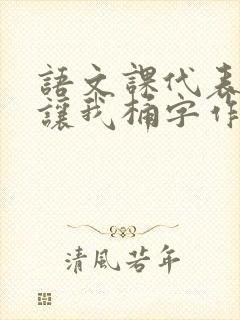 語文課代表
讓我桶字作
清風若年